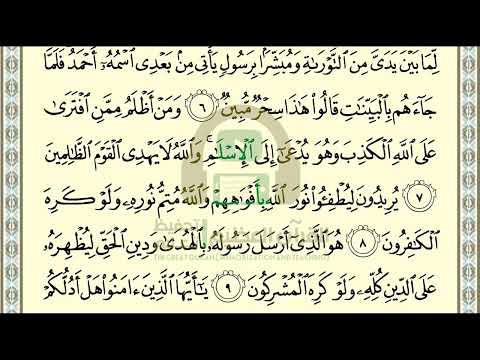 لِّمَا بَيْنَ يَدَىَّ مِنَ ٱلتَّوْرَىٰةِ وَمُبَشِّرًۢا بِرَسُولٍ يَأْتِى مِنۢ بَعْدِى ٱسْمُهُۥٓ أَحْمَدُ فَلَمَّا
جَآءَهُم بِٱلْبَيِّنَٰتِ قَالُوا۟ هَٰذَا سِحْرٌ مُّبِينٌ ٦ وَمَنْ أَظْلَمُ مِمَّنِ ٱفْتَرَىٰ
عَلَى ٱللَّهِ ٱلْكَذِبَ وَهُوَ يُدْعَىٰٓ إِلَى ٱلْإِسْلَٰمِ وَٱللَّهُ لَا يَهْدِى ٱلْقَوْمَ ٱلظَّٰلِمِينَ
٧ يُرِيدُونَ لِيُطْفِـُٔوا۟ نُورَ ٱللَّهِ بِأَفْوَٰهِهِمْ وَٱللَّهُ مُتِمُّ نُورِهِۦ وَلَوْ كَرِهَ
ٱلْكَٰفِرُونَ ٨ هُوَ ٱلَّذِىٓ أَرْسَلَ رَسُولَهُۥ بِٱلْهُدَىٰ وَدِينِ ٱلْحَقِّ لِيُظْهِرَهُۥ
THE GREAT QURAN (MEMORIZATION AND TEACHING)
عَلَى ٱلدِّينِ كُلِّهِۦ وَلَوْ كَرِهَ ٱلْمُشْرِكُونَ ٩ يَٰٓأَيُّهَا ٱلَّذِينَ ءَامَنُوا۟ هَلْ أَدُلُّكُمْ